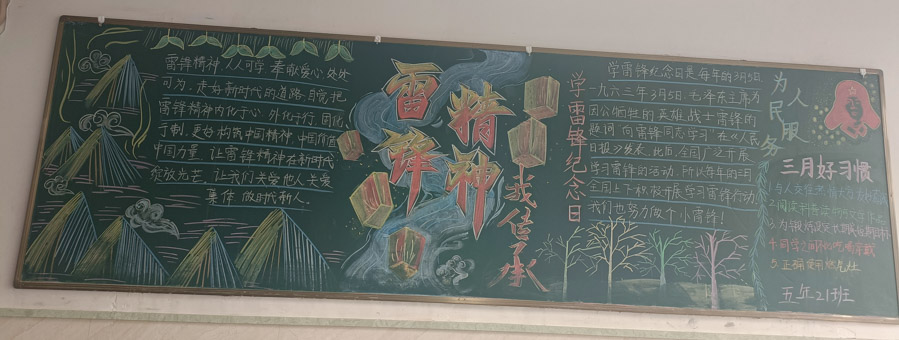 雷锋精神 人人可学 奉献爱心 处处
可为 走好新时代的道路 自觉把
雷锋精神内化于心 外化于行 固化
于制 更好构筑中国精神 中国价值
中国力量 让雷锋精神在新时代
绽放光芒 让我们关爱他人关爱
集体 做时代新人
雷锋
精神
我传承
学雷锋纪念日
学雷锋纪念日是每年的3月5日
一九六三年3月5日 毛泽东主席为
因公牺牲的英雄战士雷锋的
题词"向雷锋同志学习"在《人民
日报》发表 此后 全国广泛开展
学习雷锋的活动 所以每年的3月
全国上下积极开展学雷锋行动
我们也努力做个小雷锋!
为人民服务
三月好习惯
5 正确使用燃气灶
五年21班